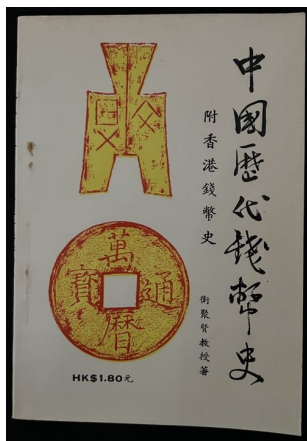 中國歷代錢幣史
附香港錢幣史
衛聚賢教授著
萬曆通寶
HK$1.80元